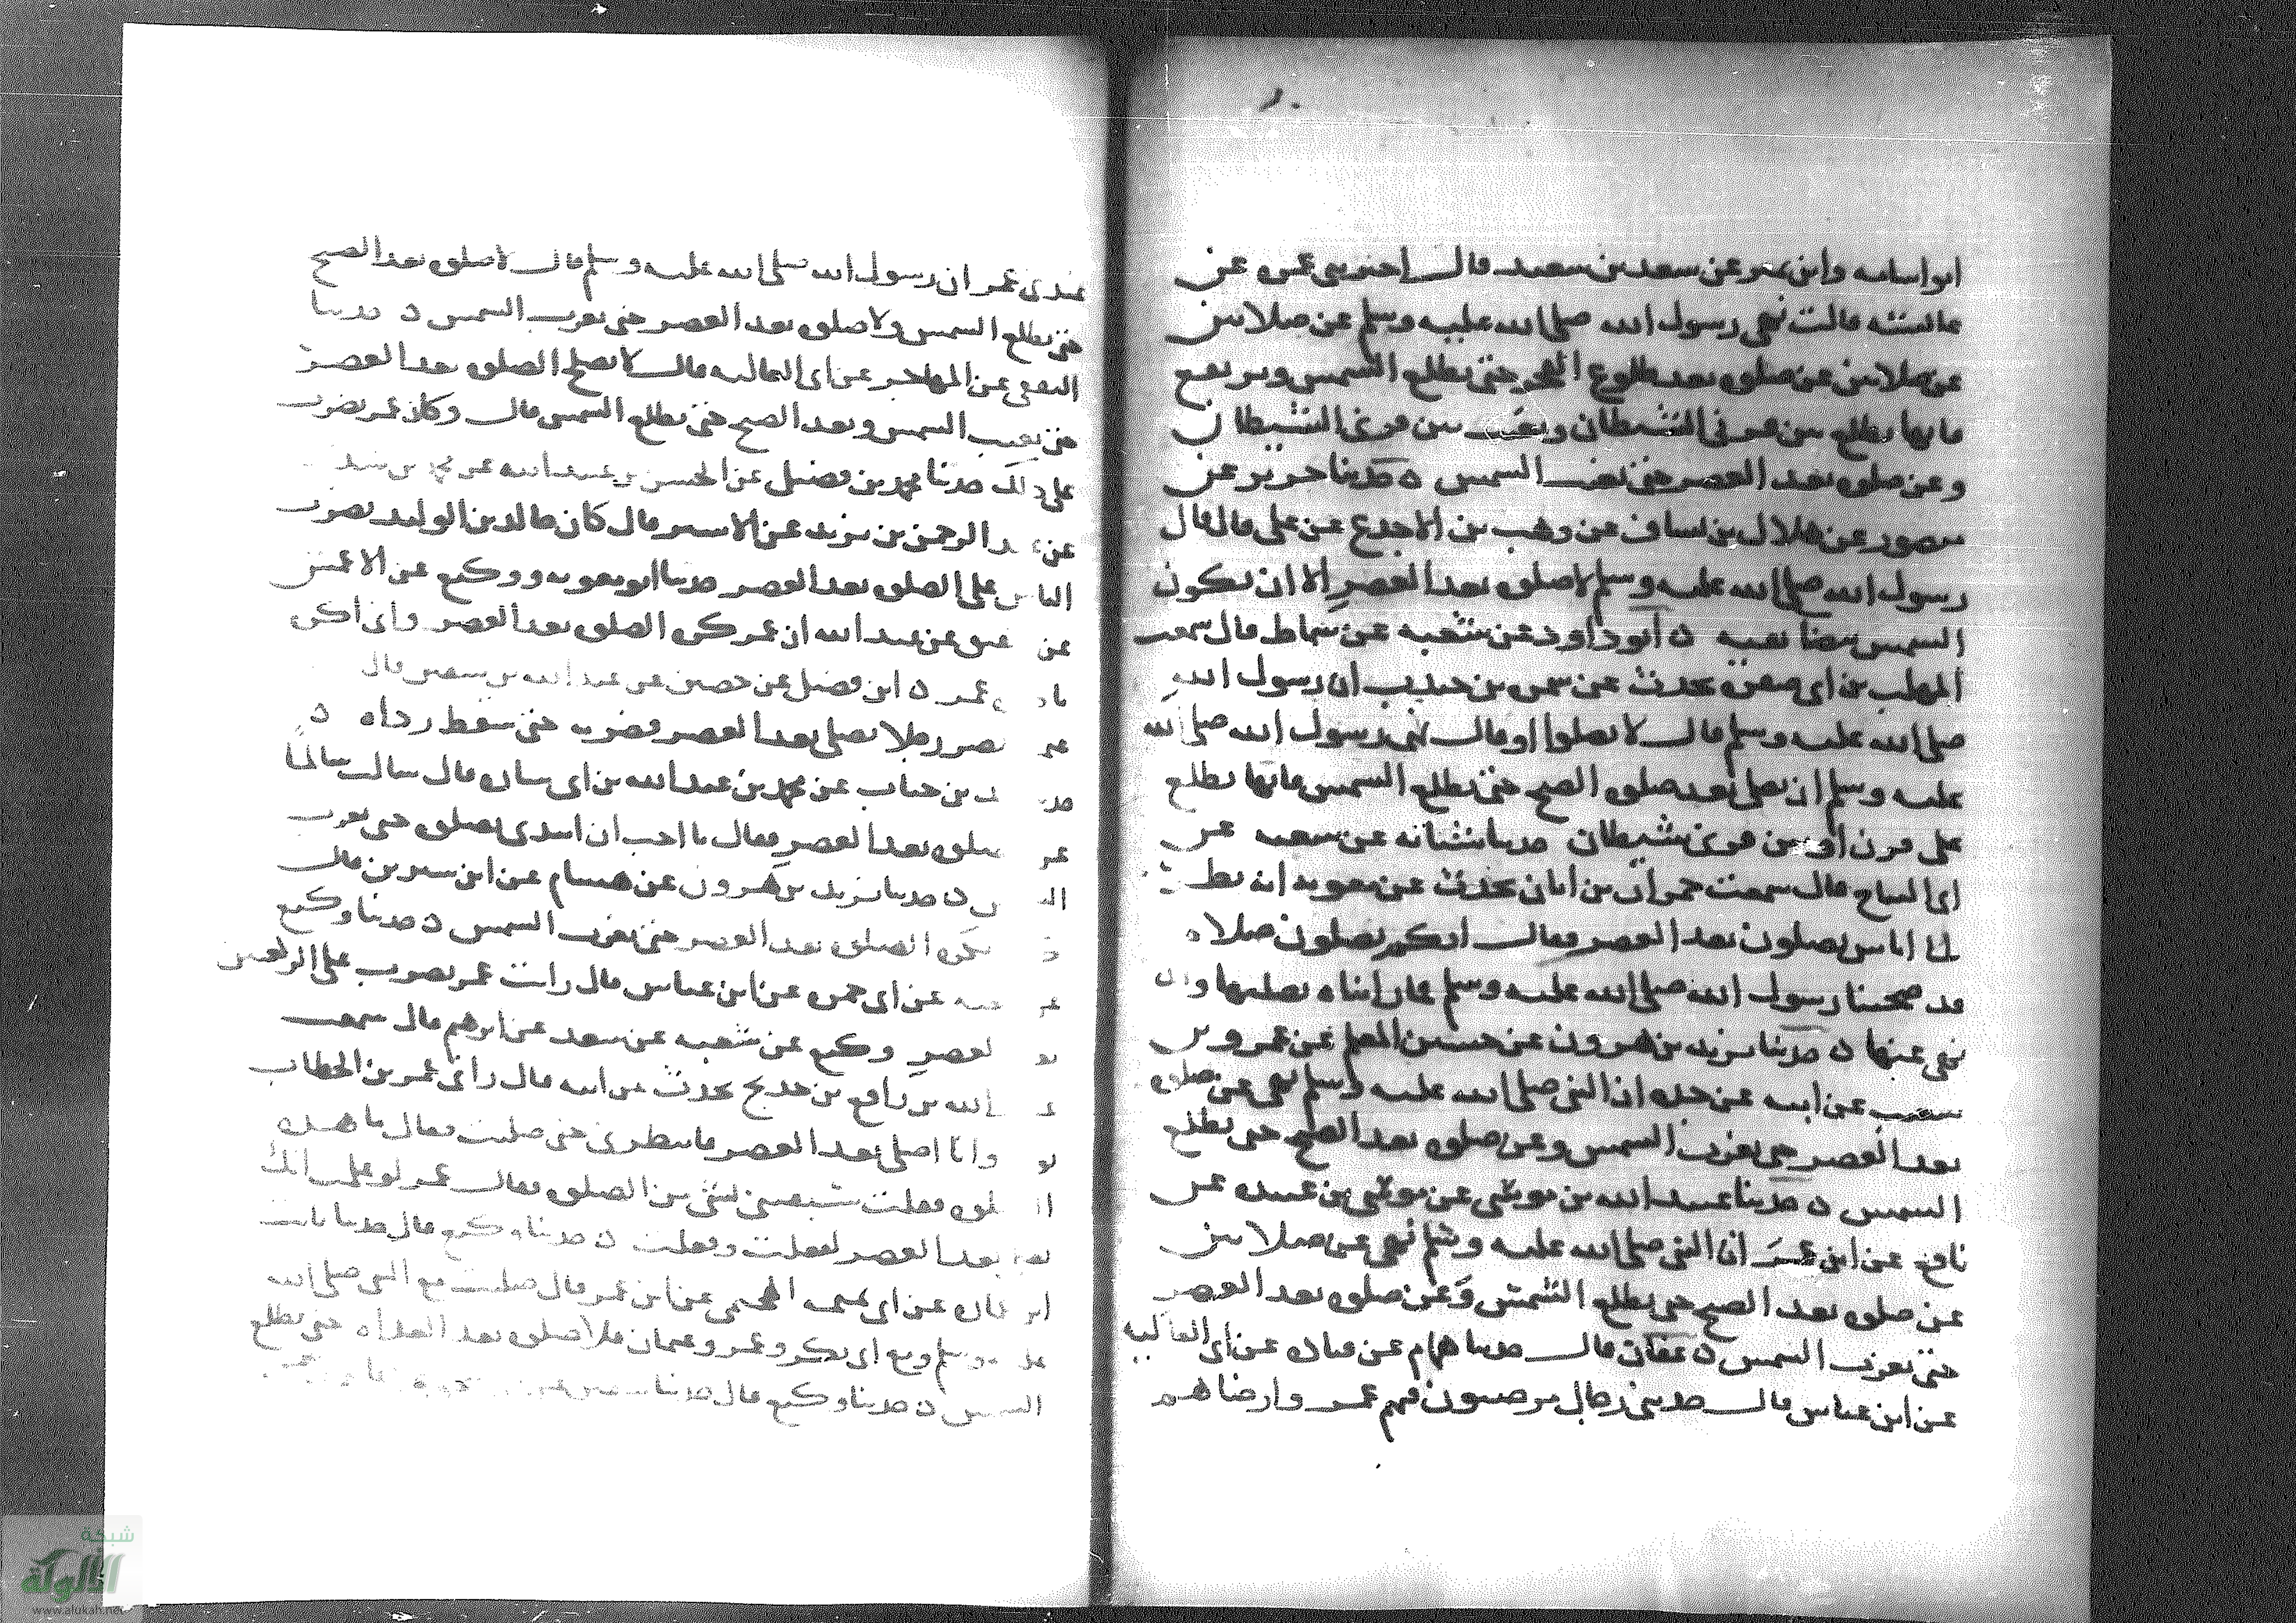 ابو اسامه وابن نمير عن سعد بن سعيد قال اخبرتني عمره عن
عائشه قالت نهى رسول الله صلى الله عليه وسلم عن صلاتين
عن صلاتين عن صلوه بعد طلوع الفجر حتى تطلع الشمس وترتفع
فانها تطلع بين قرني الشيطان وتغيب بين قرني الشيطان
وعن صلوه بعد العصر حتى تغيب الشمس ٥ حدثنا جرير عن
منصور عن هلال بن يساف عن وهب بن الاجدع عن علي قال قال
رسول الله صلى الله عليه وسلم لا صلوه بعد العصر الا ان تكون
الشمس بيضا نقيه ٥ ابو داود عن شعبه عن سماك قال سمعت
المهلب بن ابي صفرة يحدث عن سمره بن جندب ان رسول الله
صلى الله عليه وسلم قال لا تصلوا او قال نهى رسول الله صلى الله
عليه وسلم ان نصلي بعد صلوه الصبح حتى تطلع الشمس فانها تطلع
على قرن او بين قرني شيطان حدثنا شبابه عن شعبه عن
ابي التياح قال سمعت حمران بن ابان يحدث عن معويه انه
اناس يصلون بعد العصر فقال انكم تصلون صلاه
قد صحبنا رسول الله صلى الله عليه وسلم فما رايناه يصليها و
نهى عنها ٥ حدثنا يزيد بن هرون عن حسين المعلم عن عمرو بن
شعيب عن ابيه عن جده ان النبي صلى الله عليه وسلم نهى عن صلوه
بعد العصر حتى تغرب الشمس وعن صلوه بعد الصبح حتى تطلع
الشمس ٥ حدثنا عبيد الله بن موسى عن موسى بن عبيده عن
نافع عن ابن عمر ان النبي صلى الله عليه وسلم نهى عن صلاتين
عن صلوه بعد الصبح حتى تطلع الشمس وعن صلوه بعد العصر
حتى تغرب الشمس ٥ عفان قال حدثنا همام عن قتاده عن ابي العاليه
عن ابن عباس قال حدثني رجال مرضيون فيهم عمر وارضاهم
عندي عمر ان رسول الله صلى الله عليه وسلم قال لا صلوه بعد الصبح
حتى تطلع الشمس ولا صلوه بعد العصر حتى تغرب الشمس ٥ حدثنا
الثقفي عن المهاجر عن ابي العاليه قال لا تصلح الصلوه بعد العصر
حتى تغيب الشمس وبعد الصبح حتى تطلع الشمس قال وكان عمر يضرب
على ذلك حدثنا محمد بن فضيل عن الحسن بن عبيد الله عن
عن عبد الرحمن بن يزيد عن الاشتر قال كان خالد بن الوليد يضرب
الناس على الصلوه بعد العصر حدثنا ابو معويه ووكيع عن الاعمش
عن شقيق عن عبد الله ان عمر كره الصلوه بعد العصر واني اكره
ما عمر ٥ ابن فضيل عن حصين عن عبد الله بن شقيق قال
عمر رجلا يصلي بعد العصر فضربه حتى سقط رداه ٥
بن حباب عن محمد بن عبد الله بن ابي ساره قال سالت سالما
عن صلوه بعد العصر فقال ما احب ان ابتدي بصلوه حتى تغرب
٥ حدثنا يزيد بن هرون عن هشام عن ابن سيرين قال
تكره الصلوه بعد العصر حتى تغرب الشمس ٥ حدثنا وكيع
عن شعبه عن ابي جمره عن ابن عباس قال رايت عمر يضرب على الركعتين
العصر وكيع عن شعبه عن سعد عن ابرهيم قال سمعت
الله بن رافع بن خديج يحدث عن ابيه قال راني عمر بن الخطاب
وانا اصلي بعد العصر فانتظرني حتى صليت فقال ما هذه
فقلت سبقتني بشي من الصلوه فقال عمر لو علمت انك
بعد العصر لفعلت وفعلت ٥ حدثنا وكيع قال حدثنا ثابت
ابن عماره عن ابي تميمه الهجيمي عن ابن عمر قال صليت مع النبي صلى الله
عليه وسلم ومع ابي بكر وعمر وعثمان فلا صلوه بعد الغداه حتى تطلع
الشمس ٥ حدثنا وكيع قال حدثنا